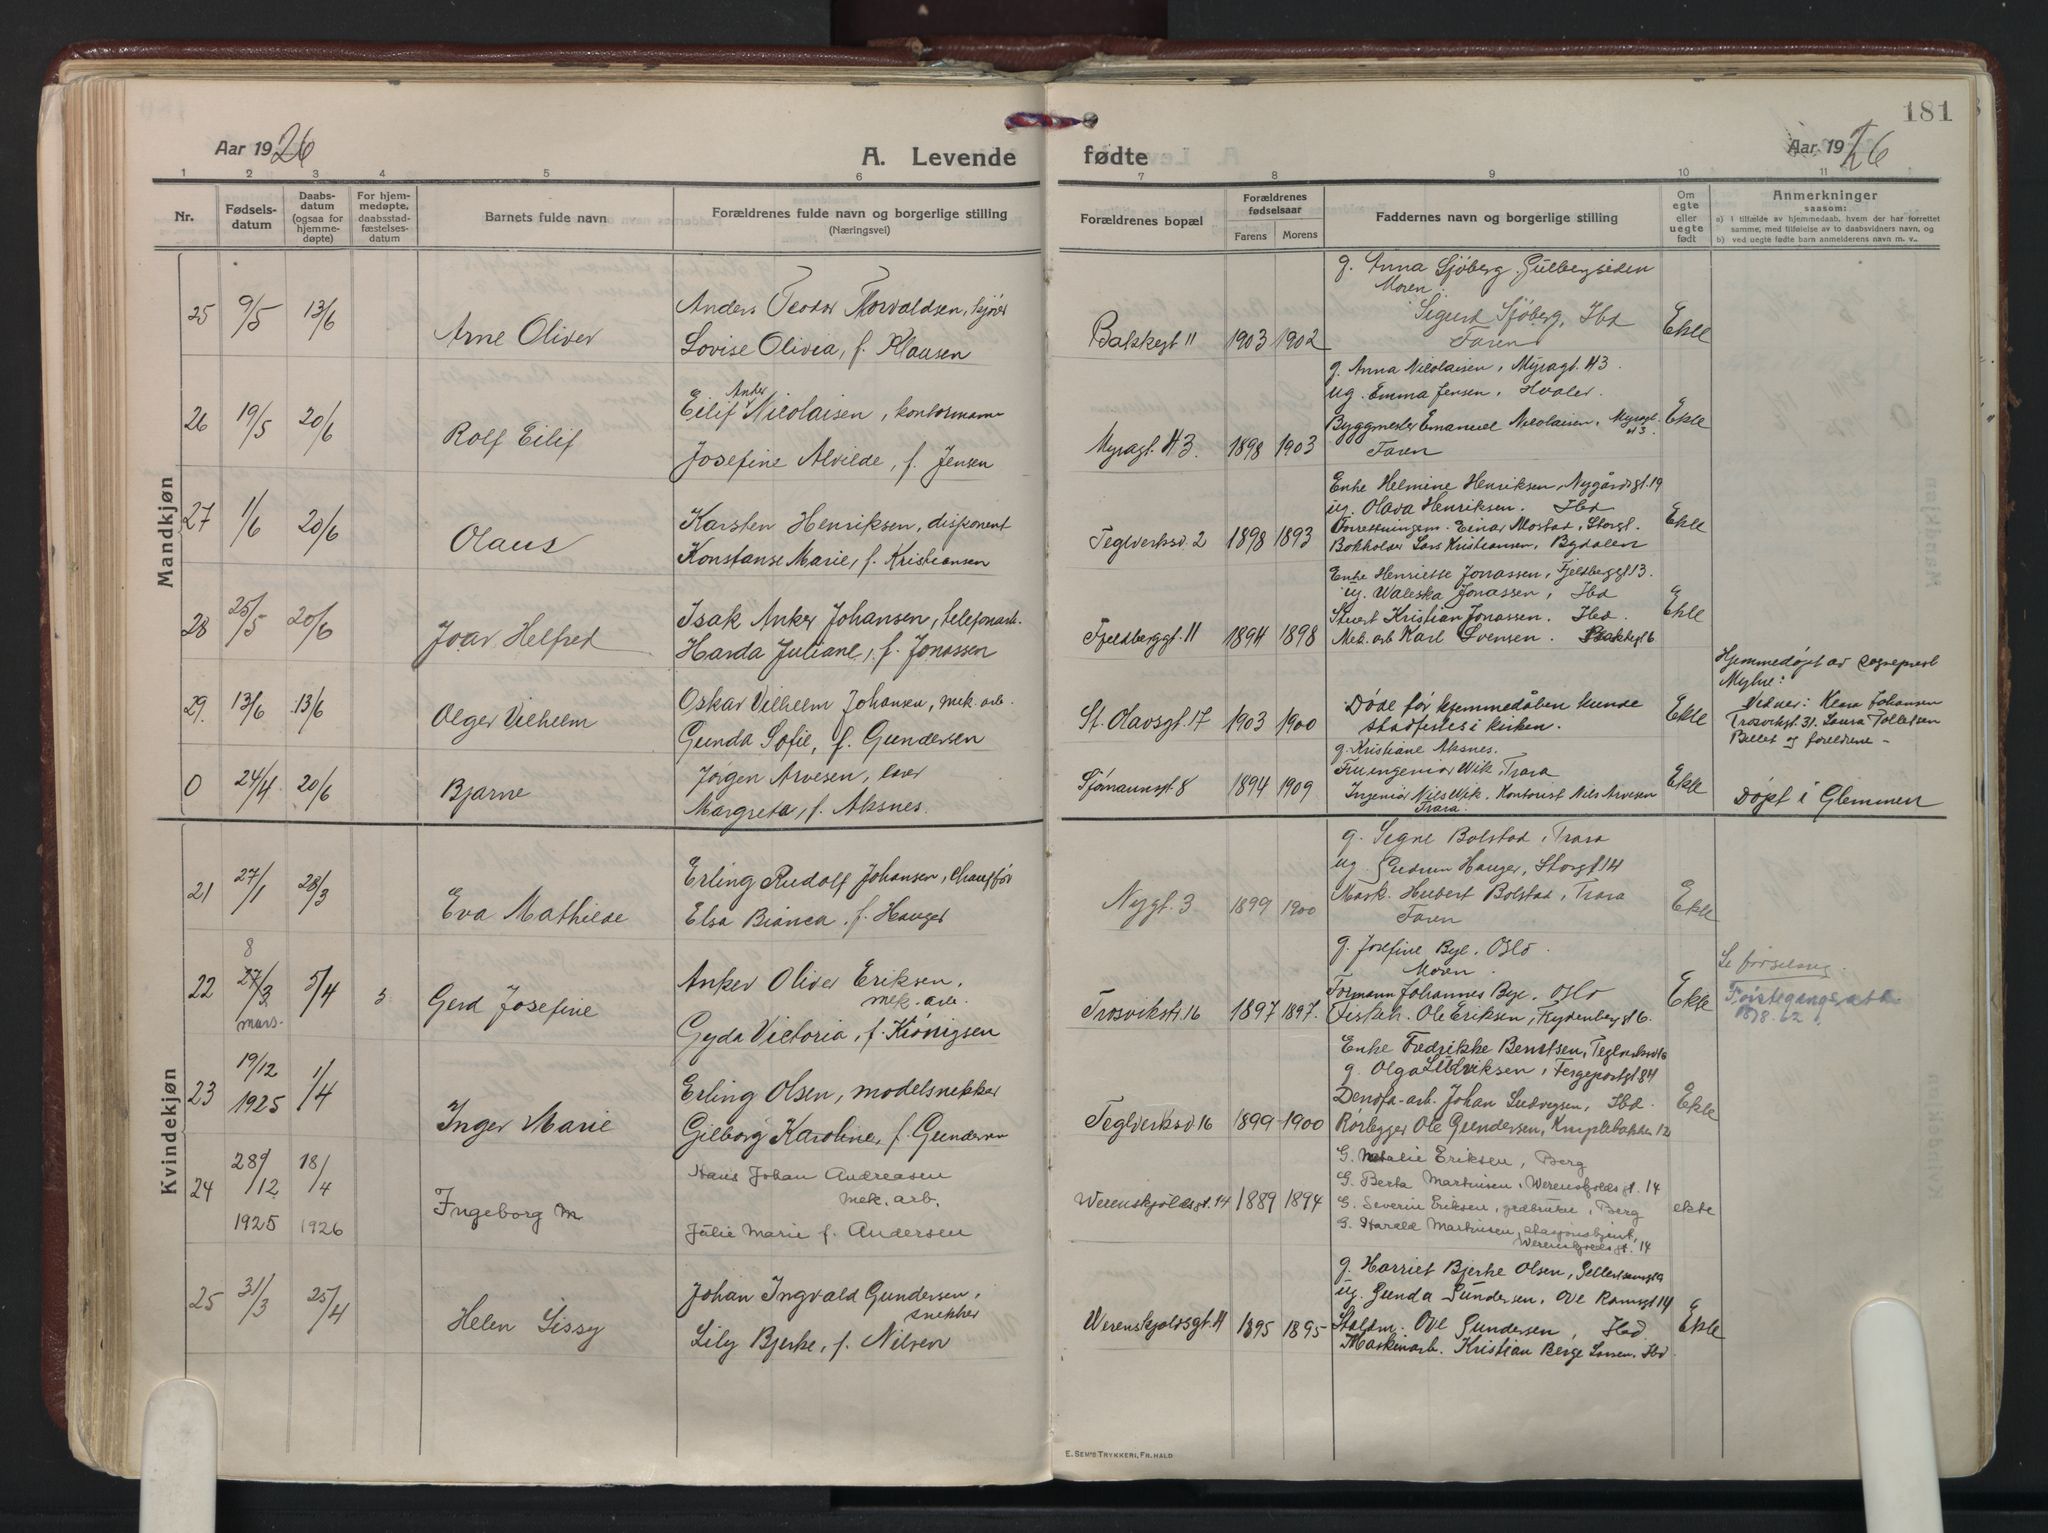 181
Aar 1926
A. Levende fødte
Aar 1926
1 2 3 4 5 6 7 8 9 10 11
Nr.
Fødsels-
datum
Daabs-
datum
(ogsaa for
hjemme-
døpte)
For hjem-
medøpte,
daabsstad-
fæstelses-
datum
Barnets fulde navn
Forældrenes fulde navn og borgerlige stilling
(Næringsvei)
Forældrenes bopæl
Forældrenes
fødselsaar
Farens Morens
Faddernes navn og borgerlige stilling
Om
egte
eller
uegte
født
Anmerkninger
saasom:
a) i tilfælde av hjemmedaab, hvem der har forrettet
samme, med tilføielse av to daabsvidners navn, og
b) ved uegte fødte barn anmelderens navn m. v..
Mandkjøn
25 9/5 13/6
Arne Oliver
Anders Teodor Torvaldsen, kjører
Lovise Olivia, f. Klausen
Bakkegt 11 1903 1902
g. Anna Sjøberg, Gulbergsiden
Moren.
Sigurd Sjøberg, Ibd
Faren
Ekte
26 19/5 20/6
Rolf Eilif
Anker
Eilif Nicolaisen, kontormann
Josefine Alvilde, f. Jensen
Myragt. 43. 1898 1903
g. Anna Nicolaisen, Myragt. 43.
ug. Emma Jensen, Hvaler.
Byggmester Emanuel Nicolaisen, Myragt.
43.
Faren
Ekte
27 1/6 20/6
Olaus
Karsten Henriksen, disponent
Konstanse Marie, f. Kristiansen
Teglverksv. 2 1898 1893
Enke Helmine Henriksen, Nygårdsgt. 19
ug. Olava Henriksen. Ibd
Forretningsm. Einar Mostad, Storgt.
Bokholder Lars Kristiansen, Bydalen
Ekte
28 25/5 20/6
Joar Helfred
Isak Anker Johansen, telefonarb.
Harda Juliane, f. Jonassen
Fjeldberggt. 11 1894 1898
Enke Henriette Jonassen, Fjeldberggt 13.
ug. Waleska Jonassen, Ibd
Stuert Kristian Jonassen. Ibd.
Mek. arb Karl Svensen. Bakkegt 6
Ekte
29. 13/6 13/6
Olger Vilhelm
Oskar Vilhelm Johansen, mek. arb.
Gunda Sofie, f. Gundersen
St. Olavsgt. 17 1903 1900
Døde før hjemmedåben kunde
stadfestes i kirken.
Ekte
Hjemmedøpt av sogneprest
Myhre:
Vidner: Klara Johansen
Trosvikgt. 31. Laura Tollefsen
Billet og foreldrene –
0 24/4 20/6
Bjarne
Jørgen Arvesen, laver
Margreta, f. Aksnes.
Sjømannsgt. 8 1894 1909
g. Kristiane Aksnes.
Fru ingeniør Wik, Trara
Ingeniør Nils Wik. Kontorist Nils Arvesen
Trara.
Ekte
Døpt i Glemmen
Kvindekjøn
21 27/1 28/3
Eva Mathilde
Erling Rudolf Johansen, Chauffør
Elsa Bianca, f. Hauger
Nygt. 3 1899 1900
g. Signe Bolstad, Trara
ug. Gudrun Hauger, Storgt 14
Mask. Hubert Bolstad, Trara
Faren
Ekte
8
22 27/3 5/4 5
mars.
Gerd Josefine
Anker Oliver Eriksen,
mek. arb.
Gyda Victoria, f. Kiønigsen
Trosvikstr. 16 1897 1897.
g. Josefine Bye, Oslo.
Moren.
Formann Johannes Bye, Oslo
Fisker. Ole Eriksen, Rydenbergt 6.
Ekte
Se fødselang.
Førstegangsatt.
18/8. 62.
23 19/12 1925 1/4
Inger Marie
Erling Olsen, modelsnekker
Gilborg Karoline, f. Gundersen
Teglverksv 16 1899 1900
Enke Fredrikke Berntsen, Teglverksv 16
g. Olga Ludviksen, Fergeportgt 84
Denofa-arb. Johan Ludvigsen, Ibd.
Rørlegger Ole Gundersen, Kniplebakken 12
Ekte
24 28/12 1925 18/4 1926
Ingeborg M
Hans Johan Andreasen
mek. arb.
Julie Marie f. Andersen
Werenskjoldsgt. 14 1889 1894
G. Natalie Eriksen, Berg
G. Berta Martinsen, Werenskjoldsgt. 14
G. Severin Eriksen, gårdbruker, Berg
G. Harald Martinsen, stasjonsbetjent,
Werenskjoldsgt. 14
ekte
25 31/3 25/4
Helen Lissy
Johan Ingvald Gundersen,
snekker
Lily Bjerke, f. Nilsen
Werenskjolsgt. 11 1895 1895
g. Harriet Bjerke Olsen,
ug. Gunda Gundersen, Ove Ramsgt 14
Staldm. Ove Gundersen, Ibd.
Maskinarb. Kristian Berge Larsen, Ibd.
Ekte
E. SEM's TRYKKERI, FR.HALD